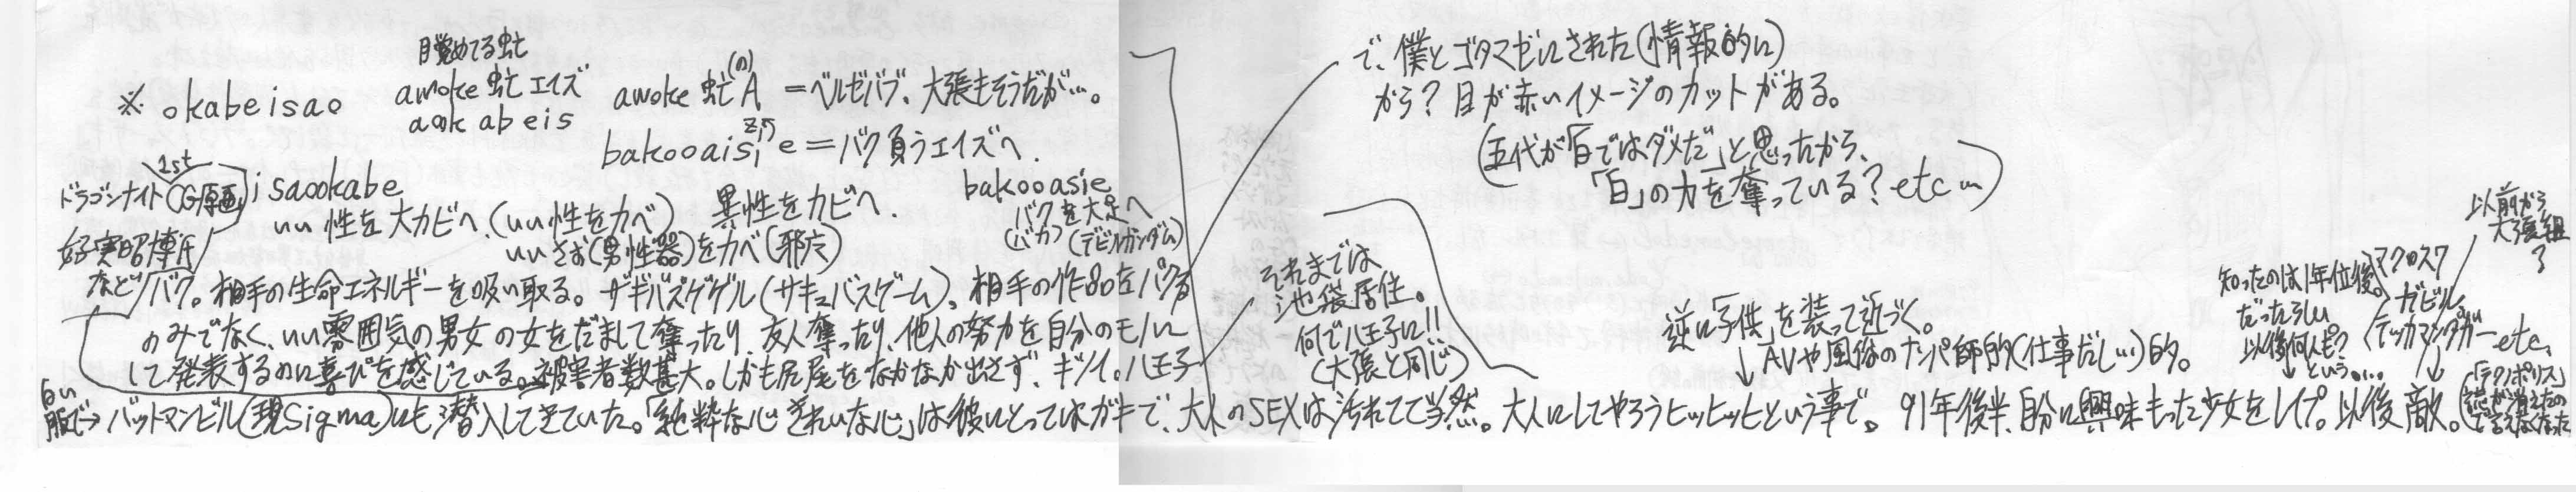 ※ okabeisao
目覚めてる虻
awoke虻エイズ
aokabeis
awoke虻(の)A =ベルゼバブ、大張もそうだが…。
bakooaisie=バク負うエイズへ.
1st
ドラゴンナイト CG原画
isaookabe
いい性を大カビへ、(いい性をカベ) 異性をカビへ.
いいさお(男性器)をカベ(邪穴)
bakooasie
バクを大足へ
(バカ) (デビルガンダム)
など/バク。相手の生命エネルギーを吸い取る。ザギバスゲゲル(サキュバスゲーム)、相手の作品をパクる
のみでなく、いい雰囲気の男女の女をだまして奪ったり、友人奪ったり、他人の努力を自分のモノに
して発表するのに喜びを感じている。被害者数甚大。しかも尻尾をなかなか出さず、ギソイ。八王子
白い
服で→バットマンビル(現Sigma)にも潜入してきていた。「純粋な心 きれいな心」は彼にとってはガキで、大人のSEXは汚れてて当然。大人にしてやろうヒッヒッヒという事で。91年後半、自分に興味もった少女をレイプ。以後敵。
で、僕とゴタマゼにされた(情報的に)
から?目が赤いイメージのカットがある。
(五代が「白ではダメだ」と思ったから、
「白」の力を奪っている?etc…)
それまでは
池袋居住。
何で八王子に!!
(大張と同じ)
逆に「子供」を装って近づく。
↓AVや風俗のナンパ師的(仕事だしい)的。
以前から
大張組
知ったのは1年位後。
だったらしい
以後何人も?
という…。
マクロス7
ガビル
テッカマンダガーetc.
「テクノポリス」